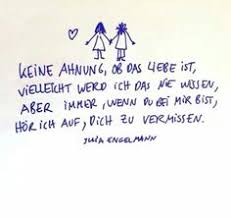 KEINE AHNUNG, OB DAS LIEBE IST,
VIELLEICHT WERD ICH DAS NIE WISSEN,
ABER IMMER, WENN DU BEI MIR BIST,
HÖR ICH AUF, DICH ZU VERMISSEN.
JULIA ENGELMANN